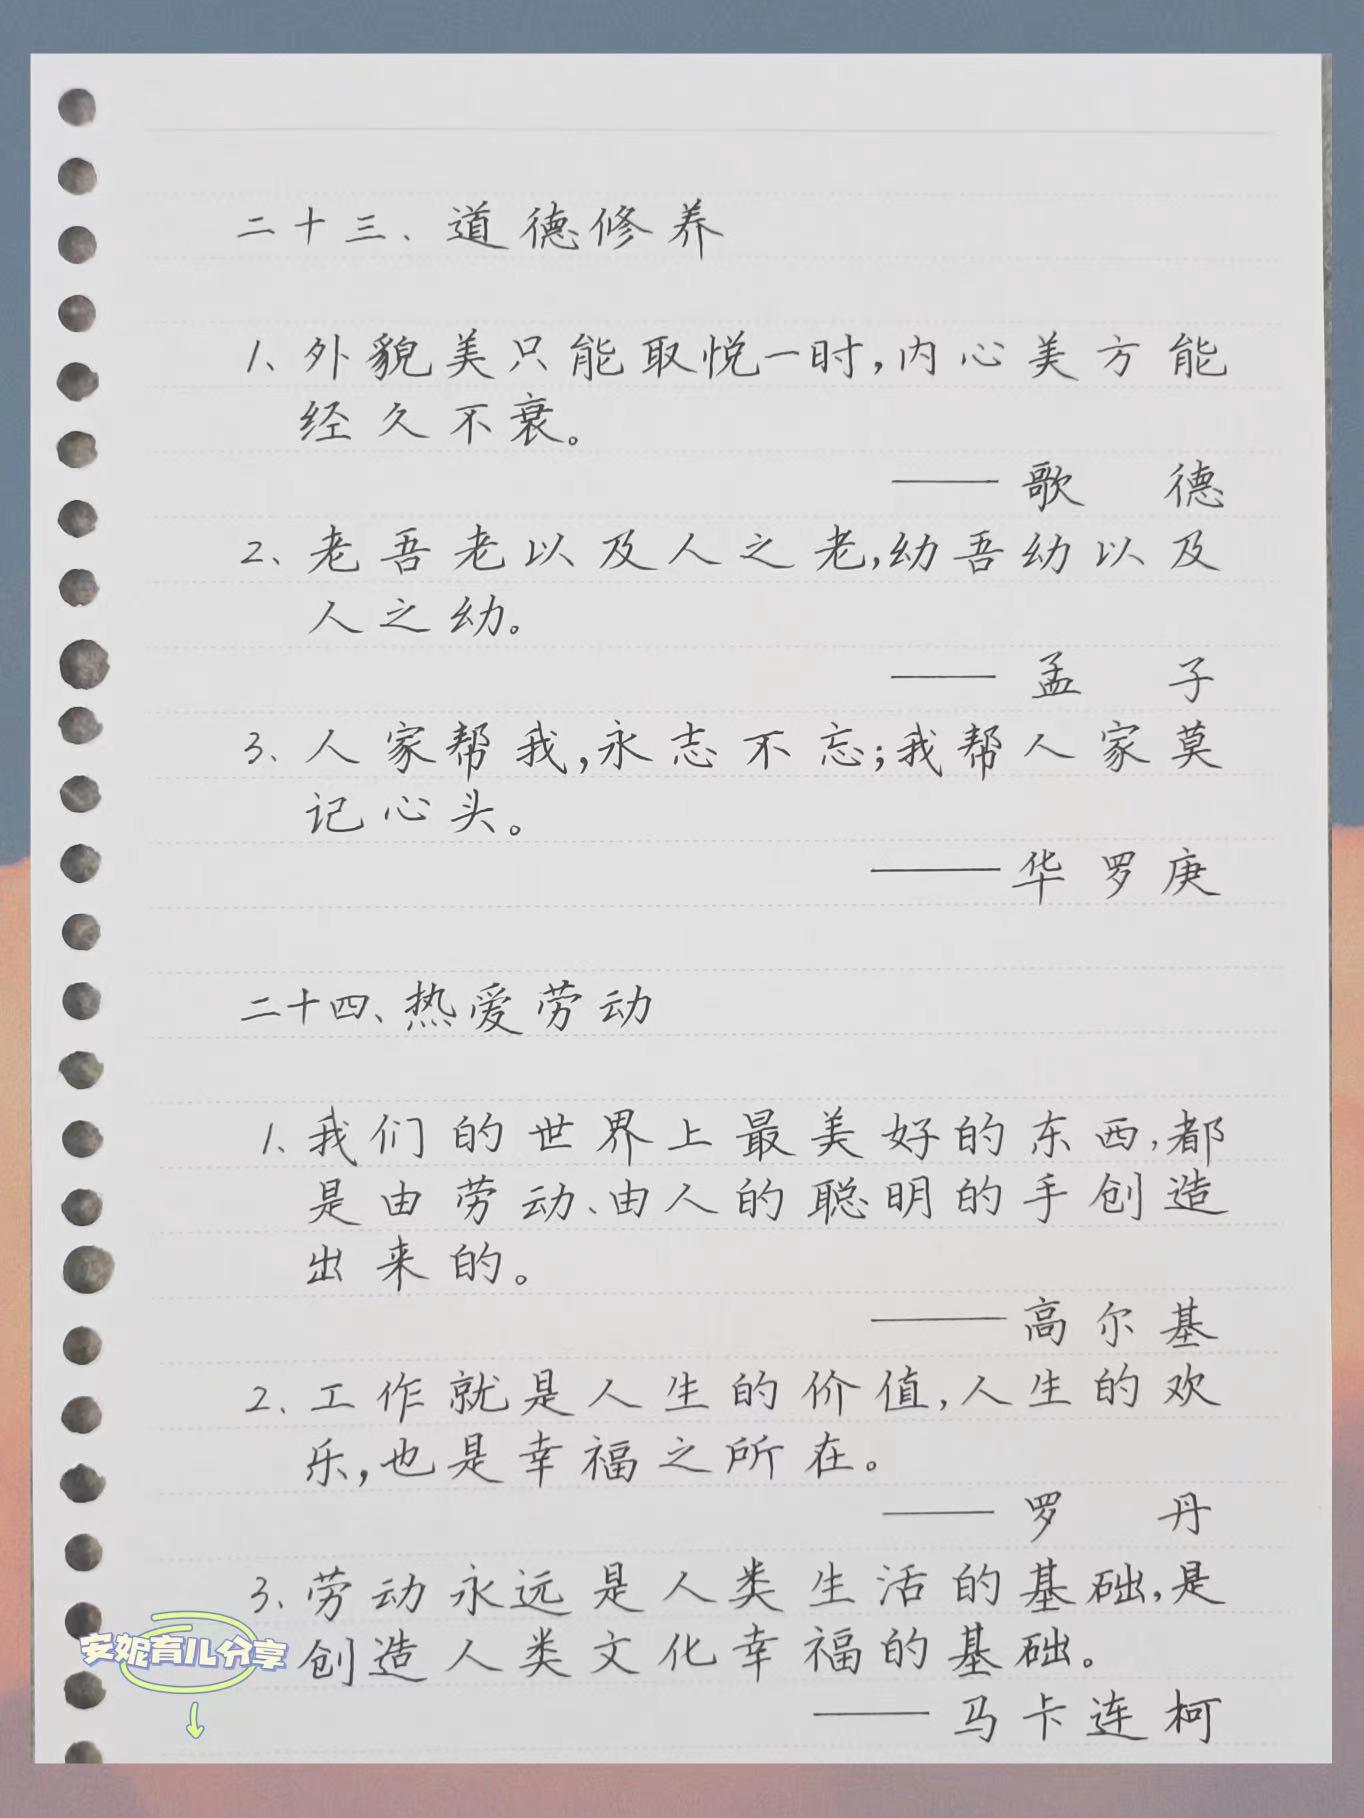 二十三、道德修养
1、外貌美只能取悦一时,内心美方能
经久不衰。
——歌 德
2、老吾老以及人之老,幼吾幼以及
人之幼。
——孟 子
3、人家帮我,永志不忘;我帮人家莫
记心头。
——华罗庚
二十四、热爱劳动
1、我们的世界上最美好的东西,都
是由劳动、由人的聪明的手创造
出来的。
——高尔基
2、工作就是人生的价值,人生的欢
乐,也是幸福之所在。
——罗 丹
3、劳动永远是人类生活的基础,是
创造人类文化幸福的基础。
——马卡连柯
安妮育儿分享